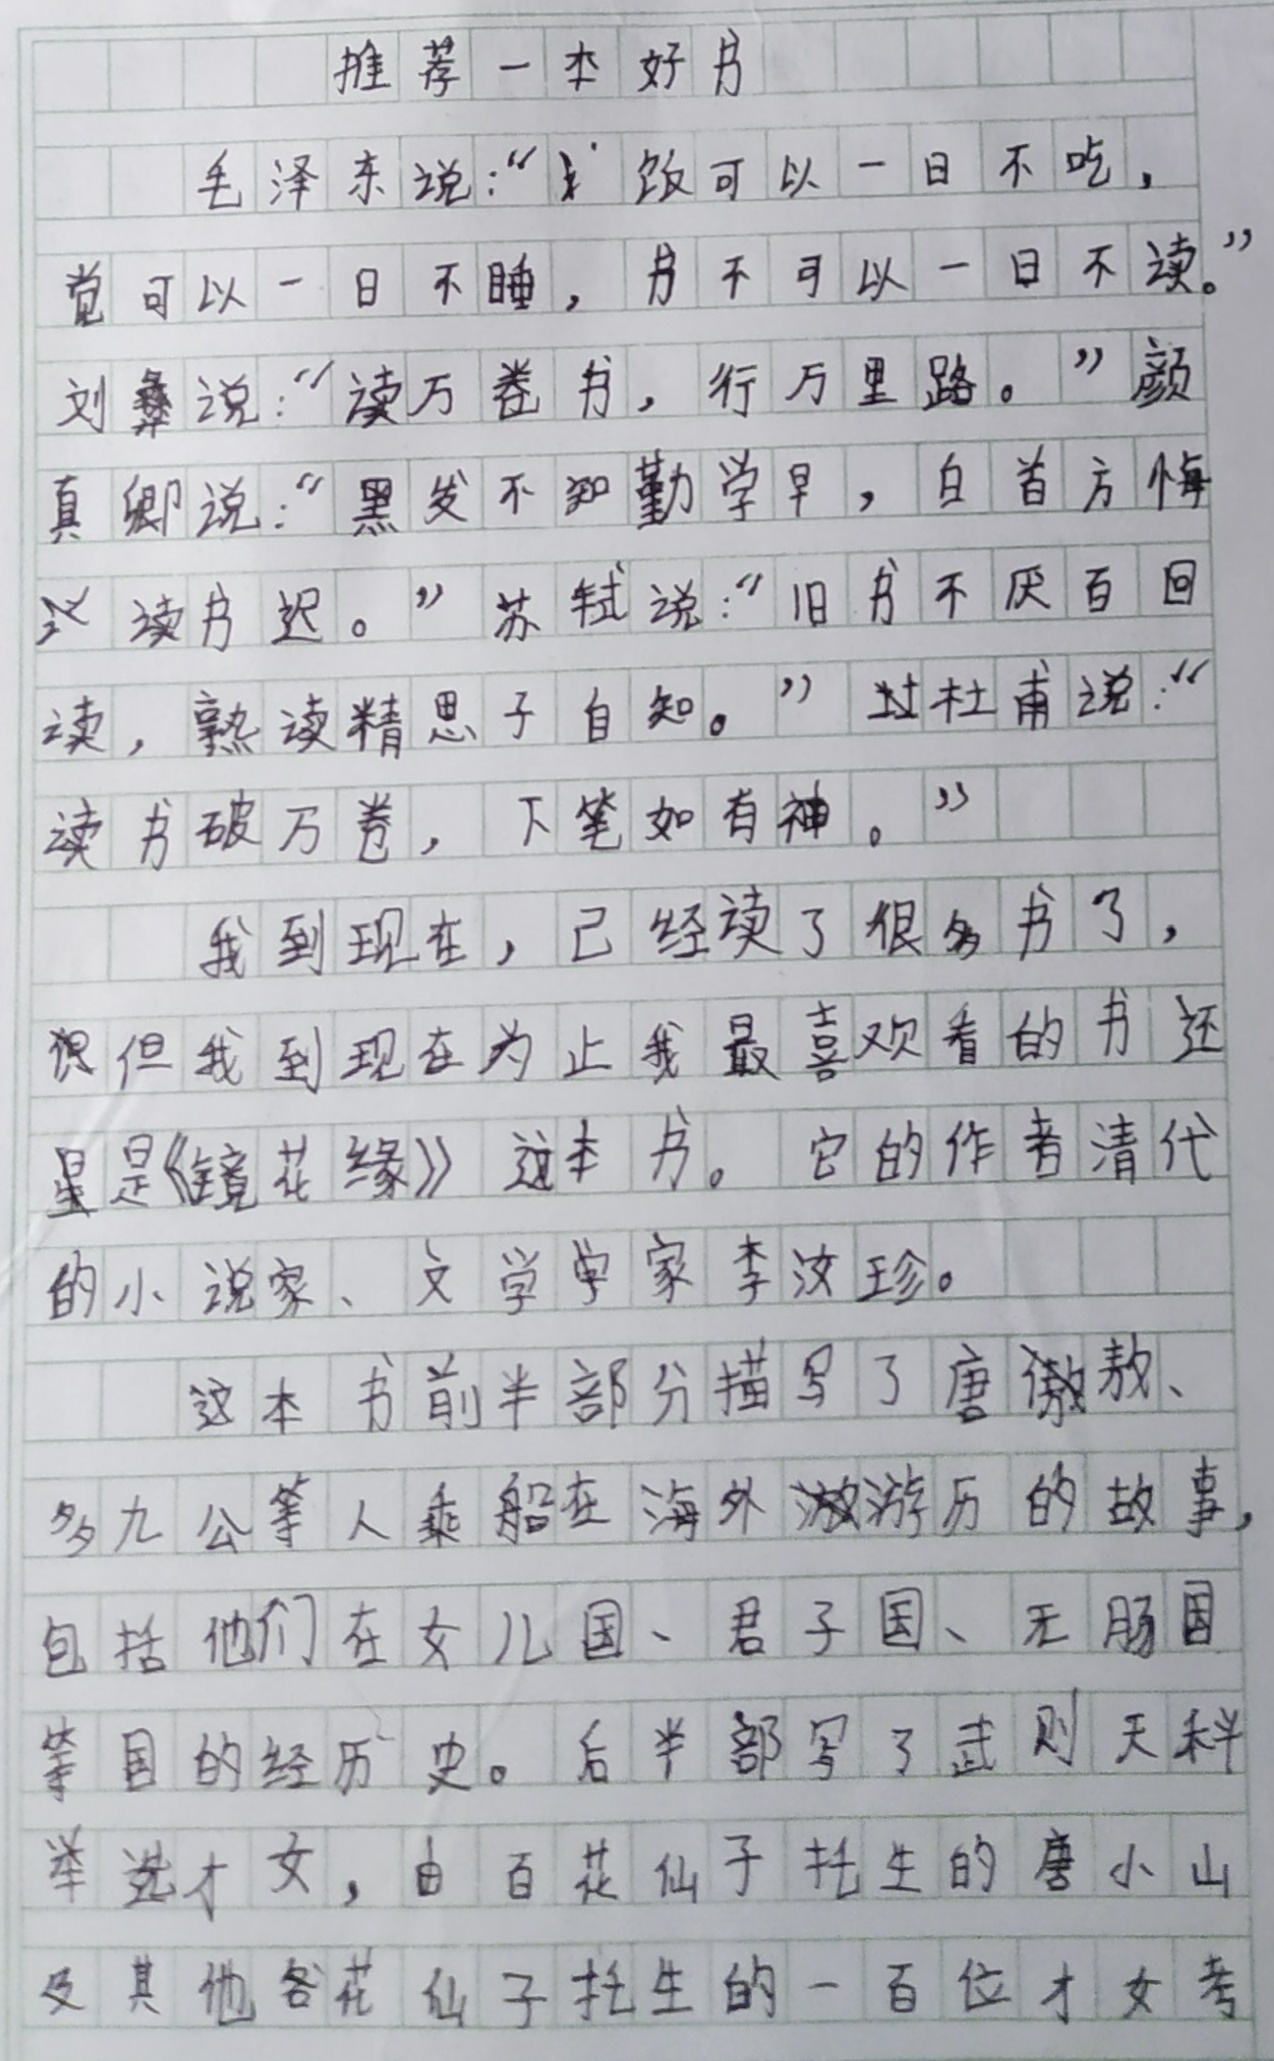 推荐一本好书
毛泽东说:“饭可以一日不吃,
觉可以一日不睡,书不可以一日不读。”
刘彝说:“读万卷书,行万里路。”颜
真卿说:“黑发不知勤学早,白首方悔
读书迟。”苏轼说:“旧书不厌百回
读,熟读精思子自知。”杜甫说:“
读书破万卷,下笔如有神。”
我到现在,已经读了很多书了,
但我到现在为止我最喜欢看的书还
是《镜花缘》这本书。它的作者清代
的小说家、文学学家李汝珍。
这本书前半部分描写了唐敖、
多九公等人乘船在海外游历的故事,
包括他们在女儿国、君子国、无肠国
等国的经历史。后半部写了武则天科
举选才女,由百花仙子托生的唐小山
及其他各花仙子托生的一百位才女考